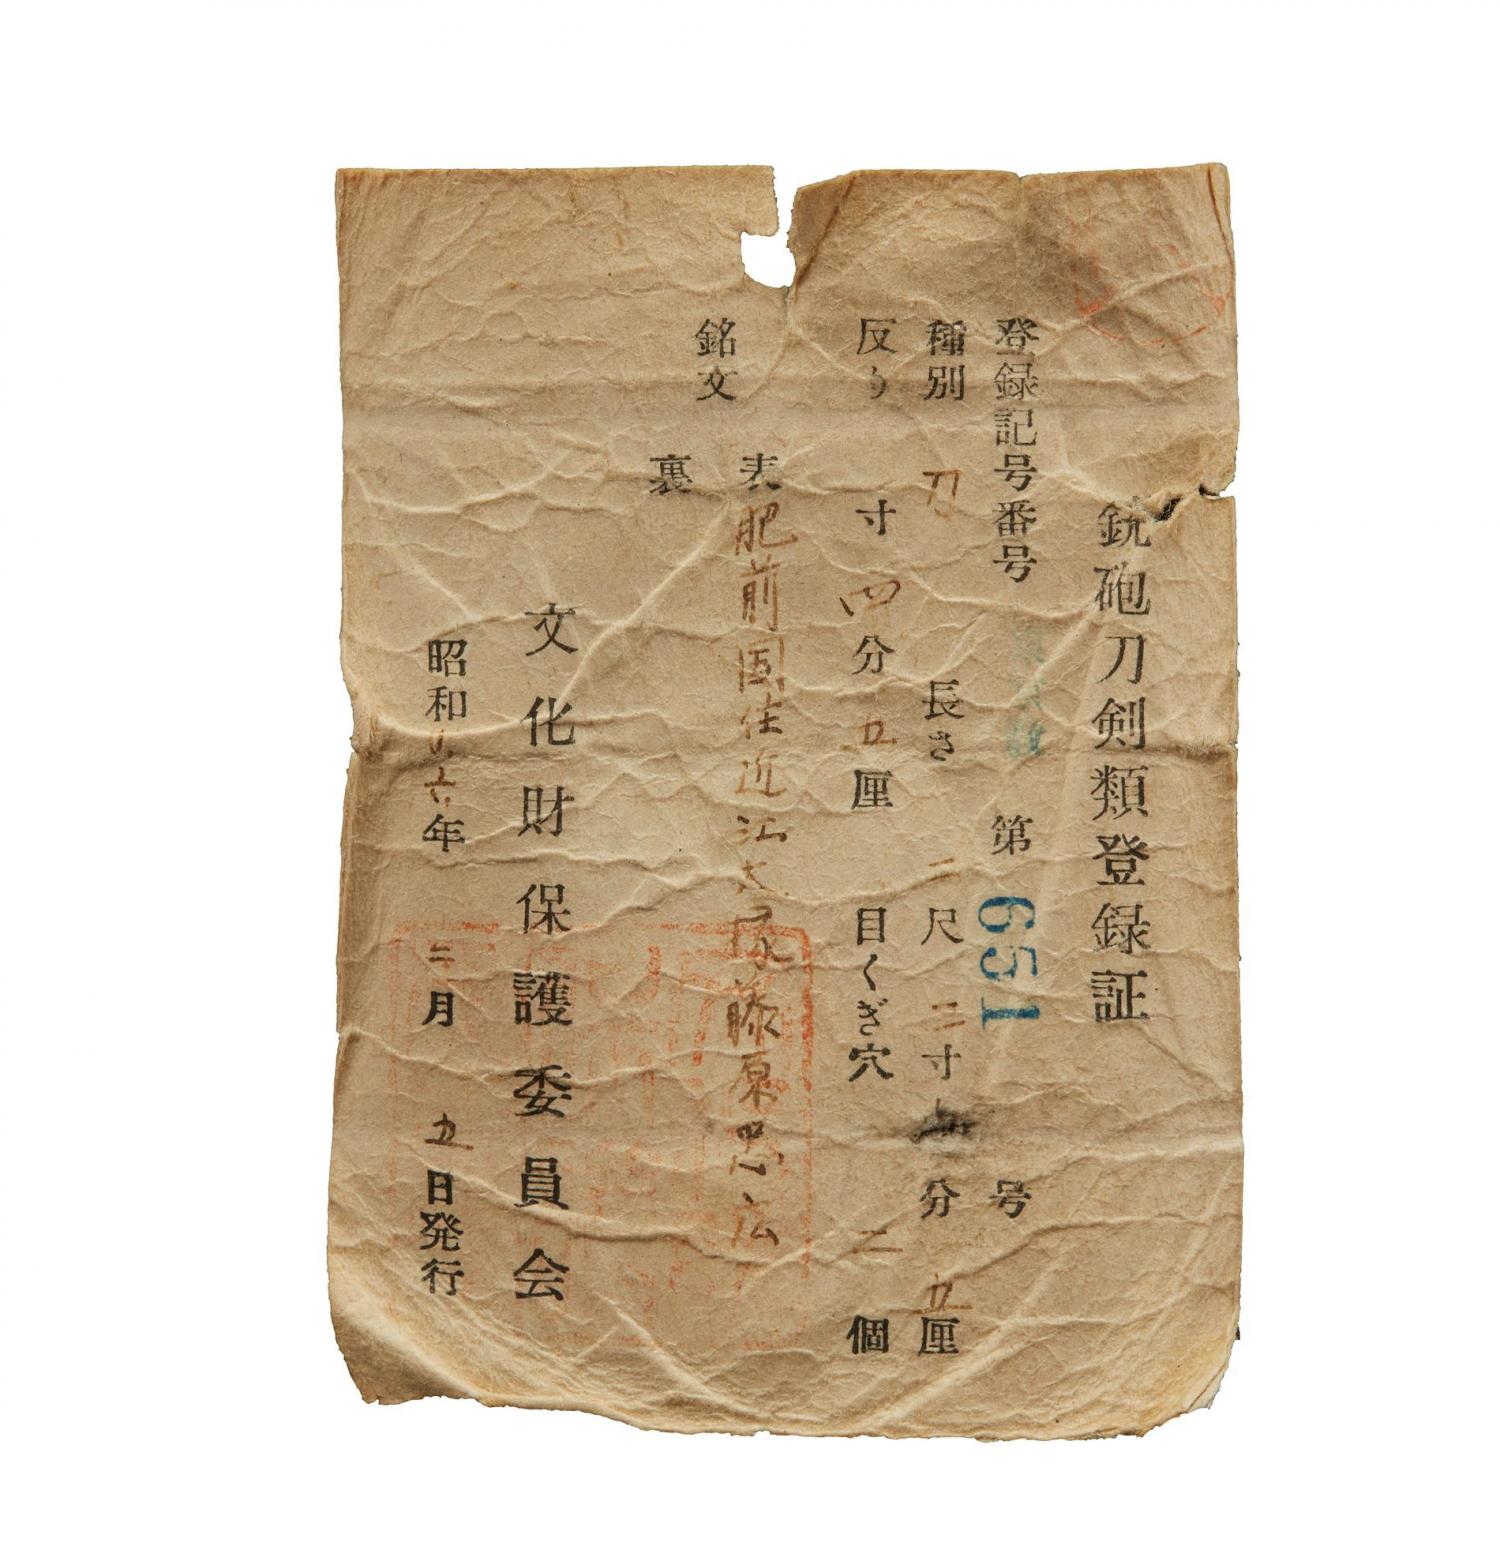 銃砲刀剣類登録証
登録記号番号 第 651 号
種別 刀 長さ 二尺 三寸 分 五厘
反り 寸 四分 五厘 目くぎ穴 二個
銘文
表 肥前国住近江大掾藤原忠広
裏
文化財保護委員会
昭和 六年 二月 五日発行